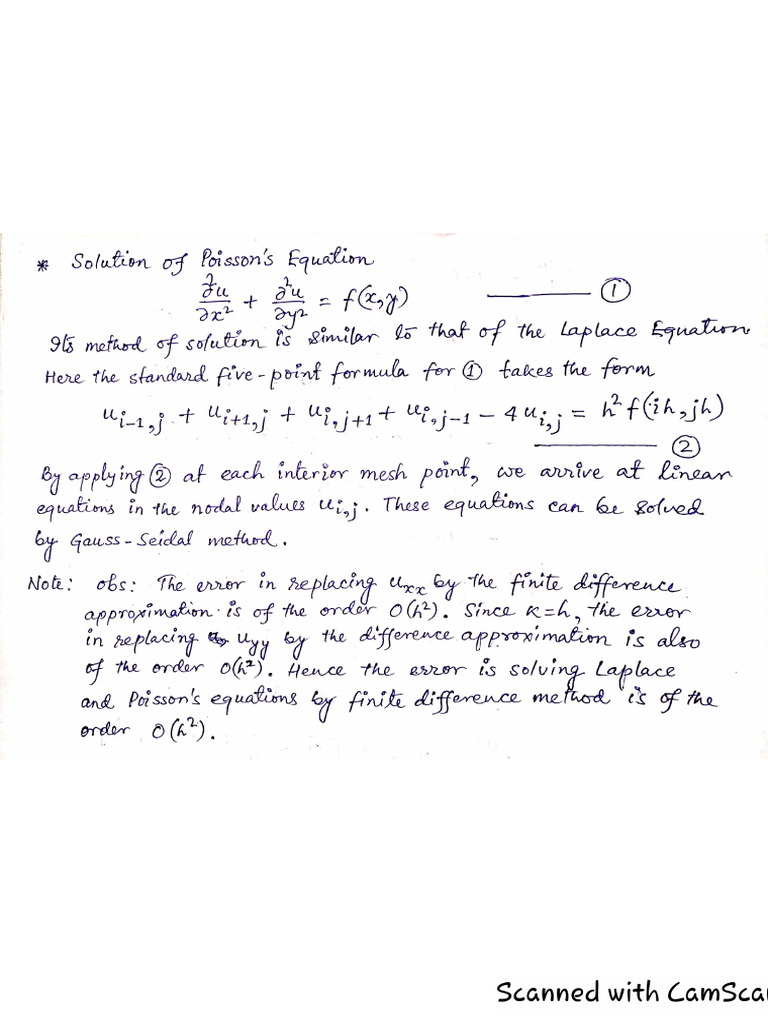 * Solution of Poisson's Equation
∂²u/∂x² + ∂²u/∂y² = f(x,y) ——— ①
Its method of solution is similar to that of the Laplace Equation
Here the standard five-point formula for ① takes the form
u_{i-1,j} + u_{i+1,j} + u_{i,j+1} + u_{i,j-1} - 4u_{i,j} = h² f(ih, jh)
——— ②
By applying ② at each interior mesh point, we arrive at linear
equations in the nodal values u_{i,j}. These equations can be solved
by Gauss-Seidal method.
Note: obs: The error in replacing u_{xx} by the finite difference
approximation is of the order O(h²). Since k=h, the error
in replacing u_{yy} by the difference approximation is also
of the order O(h²). Hence the error is solving Laplace
and Poisson's equations by finite difference method is of the
order O(h²).
Scanned with CamScan